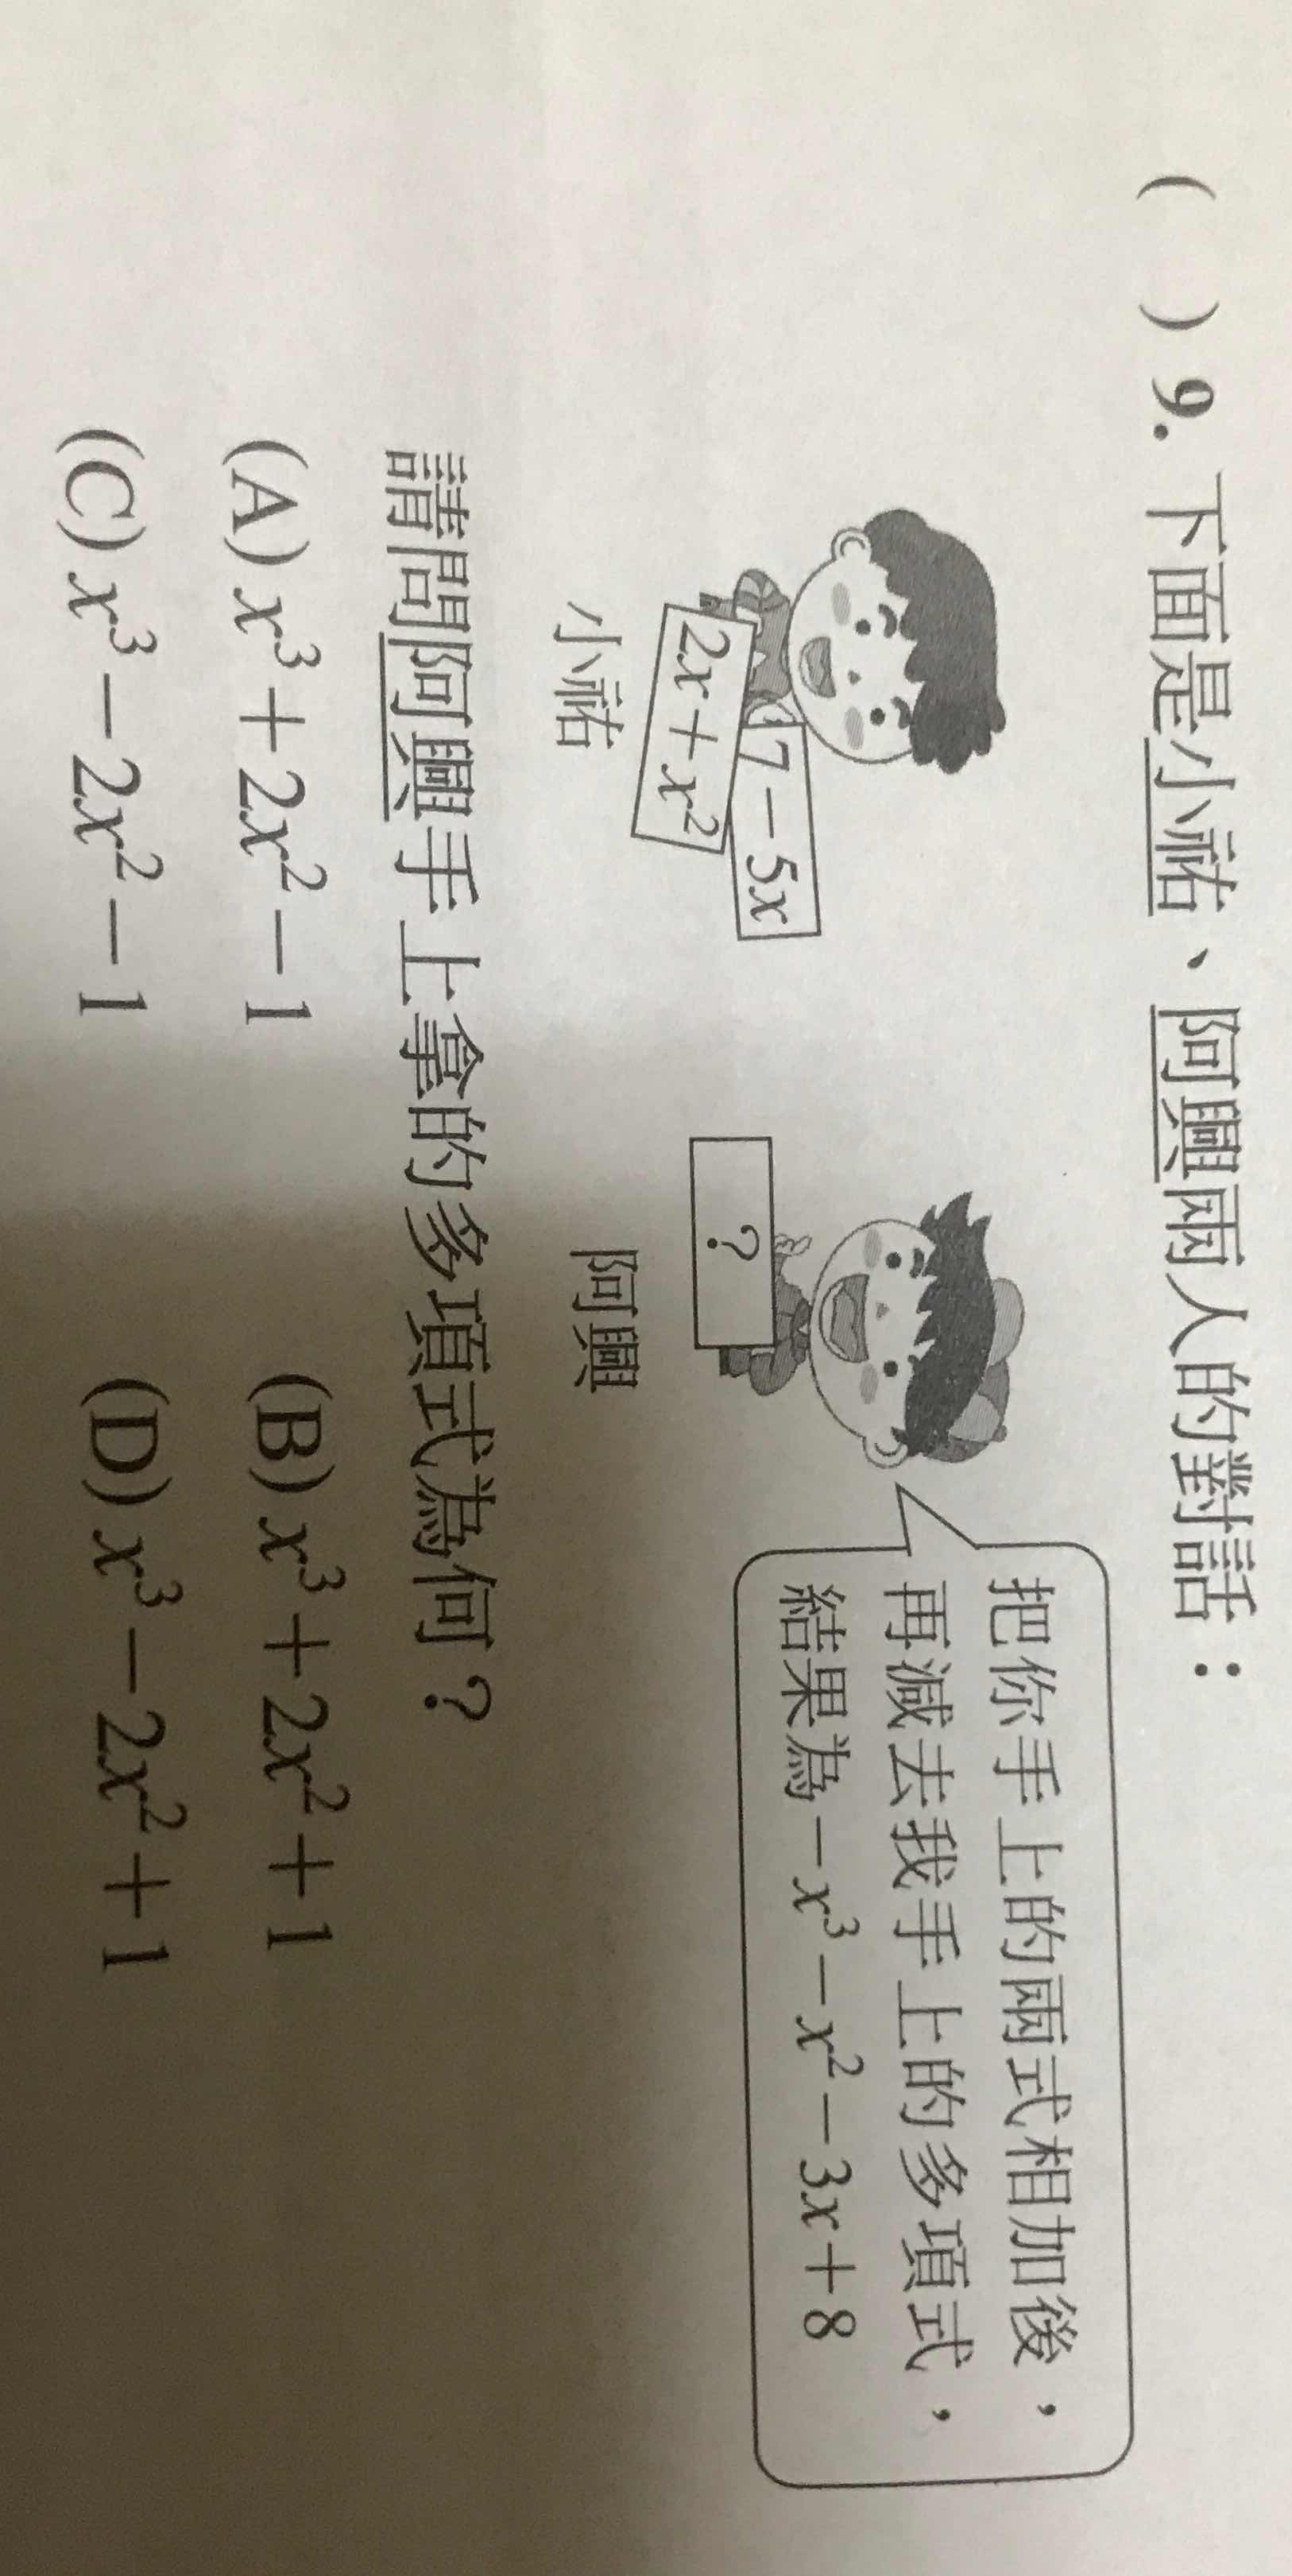 ( ) 9. 下面是小祐、阿興兩人的對話：
把你手上的兩式相加後，
再減去我手上的多項式，
結果為－x³－x²－3x＋8
7－5x
2x＋x²
?
小祐
阿興
請問阿興手上拿的多項式為何？
(A) x³＋2x²－1 (B) x³＋2x²＋1
(C) x³－2x²－1 (D) x³－2x²＋1